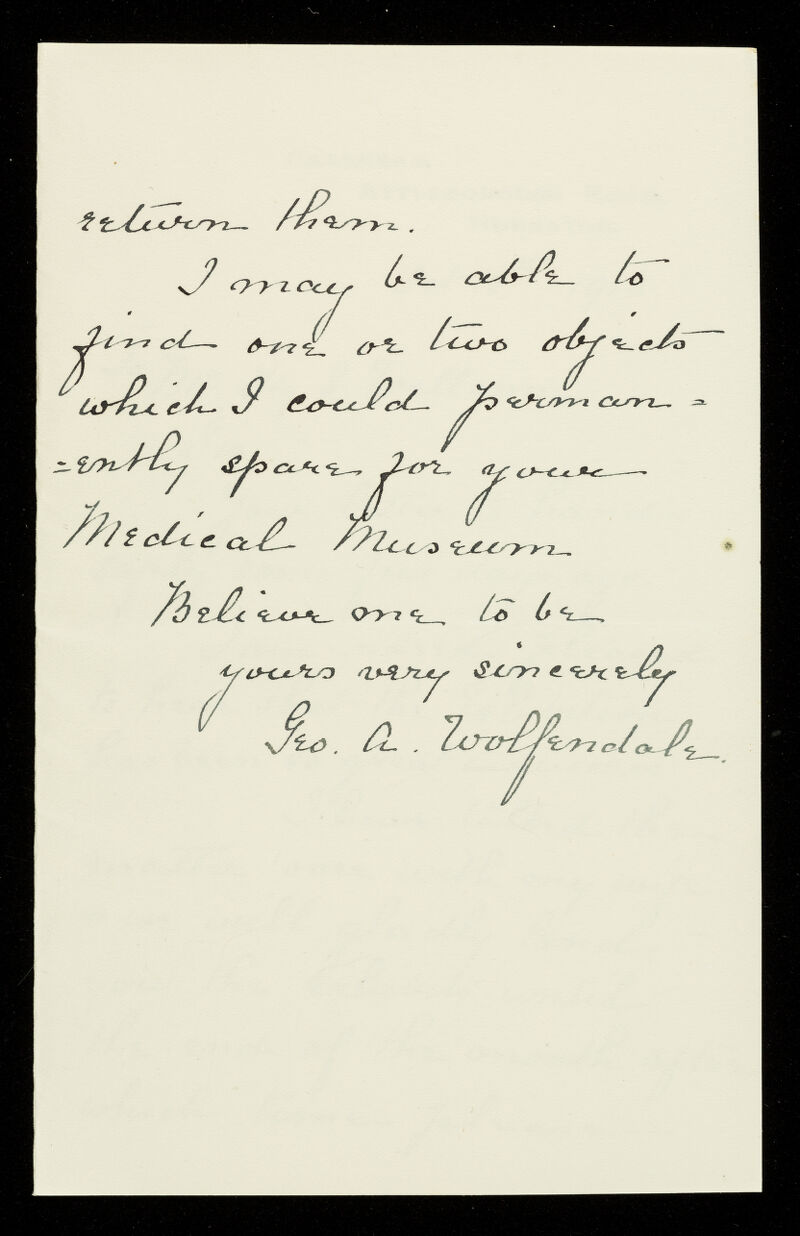 return them.
I may be able to
find one or two objects
which I could perman=
=ently spare for your
Medical Museum
Believe me to be
yours very sincerely
Geo. A. Wolfendale.